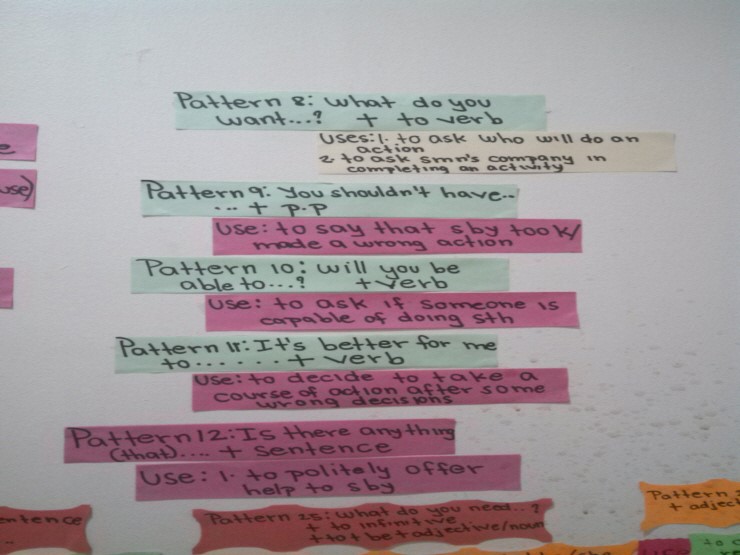 Pattern 8: What do you
want...? + to verb
Uses: 1. to ask who will do an
action
2. to ask smn's company in
completing an activity
e
use)
Pattern 9: You shouldn't have..
... + p.p
Use: to say that sby took/
made a wrong action
Pattern 10: will you be
able to...? + verb
Use: to ask if someone is
capable of doing sth
Pattern 11: It's better for me
to...... + verb
Use: to decide to take a
course of action after some
wrong decisions
Pattern 12: Is there anything
(that).... + sentence
Use: 1. to politely offer
help to sby
entence
..
Pattern 25: what do you need...?
+ to infinitive
+ to + be + adjective/noun
Pattern
+ adject